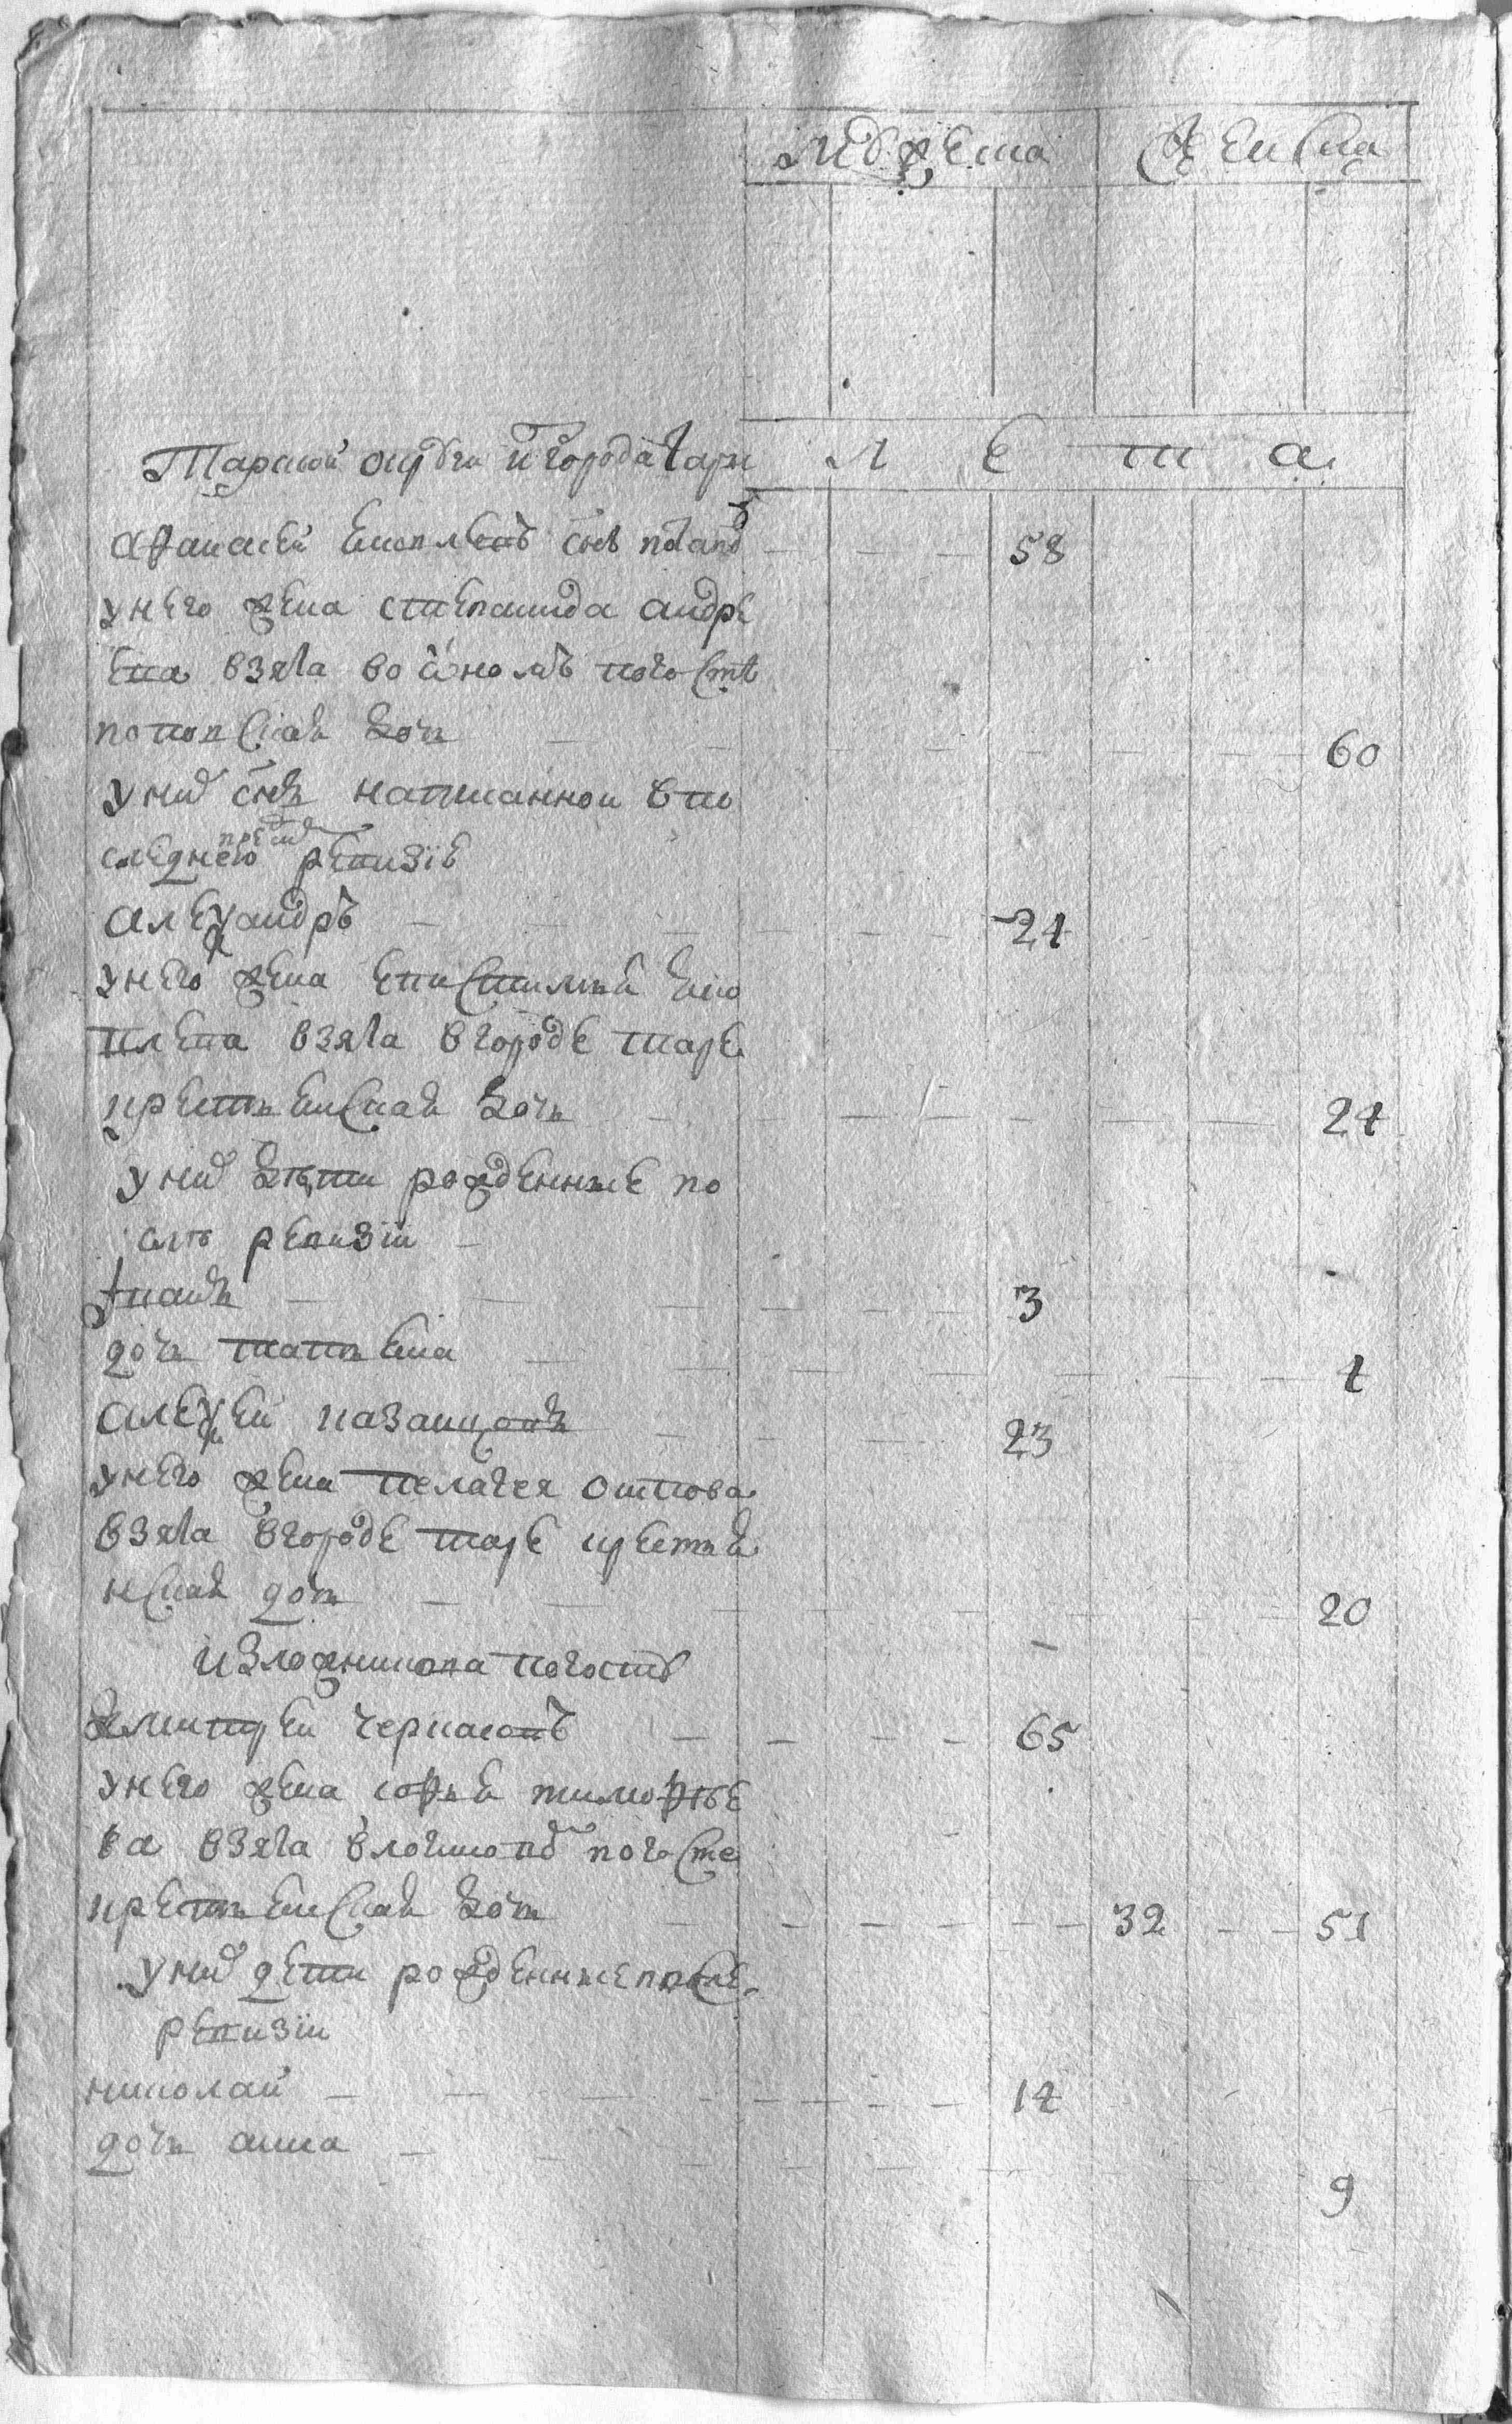 Мужеска Женска
Тарской округи и города Тары Л е т а
Афанасей Яковлевъ снъ 58
у него жена степанида андре
ева взята во погосте
поповская дочь 60
у них снъ написанной в по
следнею пред ревизiе
Александръ 21
у него жена епистимия яко
влева взята в городе таре
крестьенская дочь 24
у них дѣти рожденные по
слѣ ревизiи
Iванъ 3
дочь татьяна 1
Алексей казанцовъ 23
у него жена пелагея осипова
взята в городе таре крестья
нская дочь 20
Из ложникова погоста
Дмитрей черкасовъ 65
у него жена софья тимофѣе
ва взята в логиновѣ погосте
крестьенская дочь 32 51
у них дети рожденные после
ревизiи
николай 14
дочь анна 9